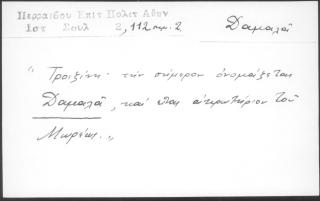 Περραιβου Επιτ Πολιτ Αθην
Ιστ Σουλ 2,112 σημ.2 Δαμαλᾶ
"Τροιζήνη· τὴν σήμερον ὀνομάζεται
Δαμαλᾶ, καὶ εἶναι ἀκρωτήριον τοῦ
Μωρέως."